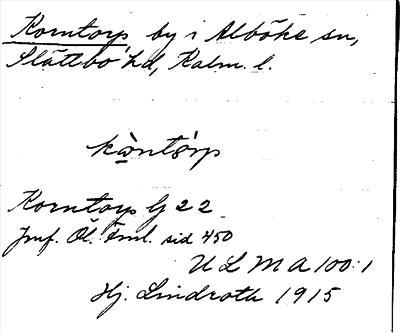 Korntorp, by i Alböke sn,
Slättbo hd, Kalm. l.
kò̤ntɵ̀rp
Korntorp G 22
Jmf. Öl. Fml. sid 450
U L M A 100:1
Hj. Lindroth 1915